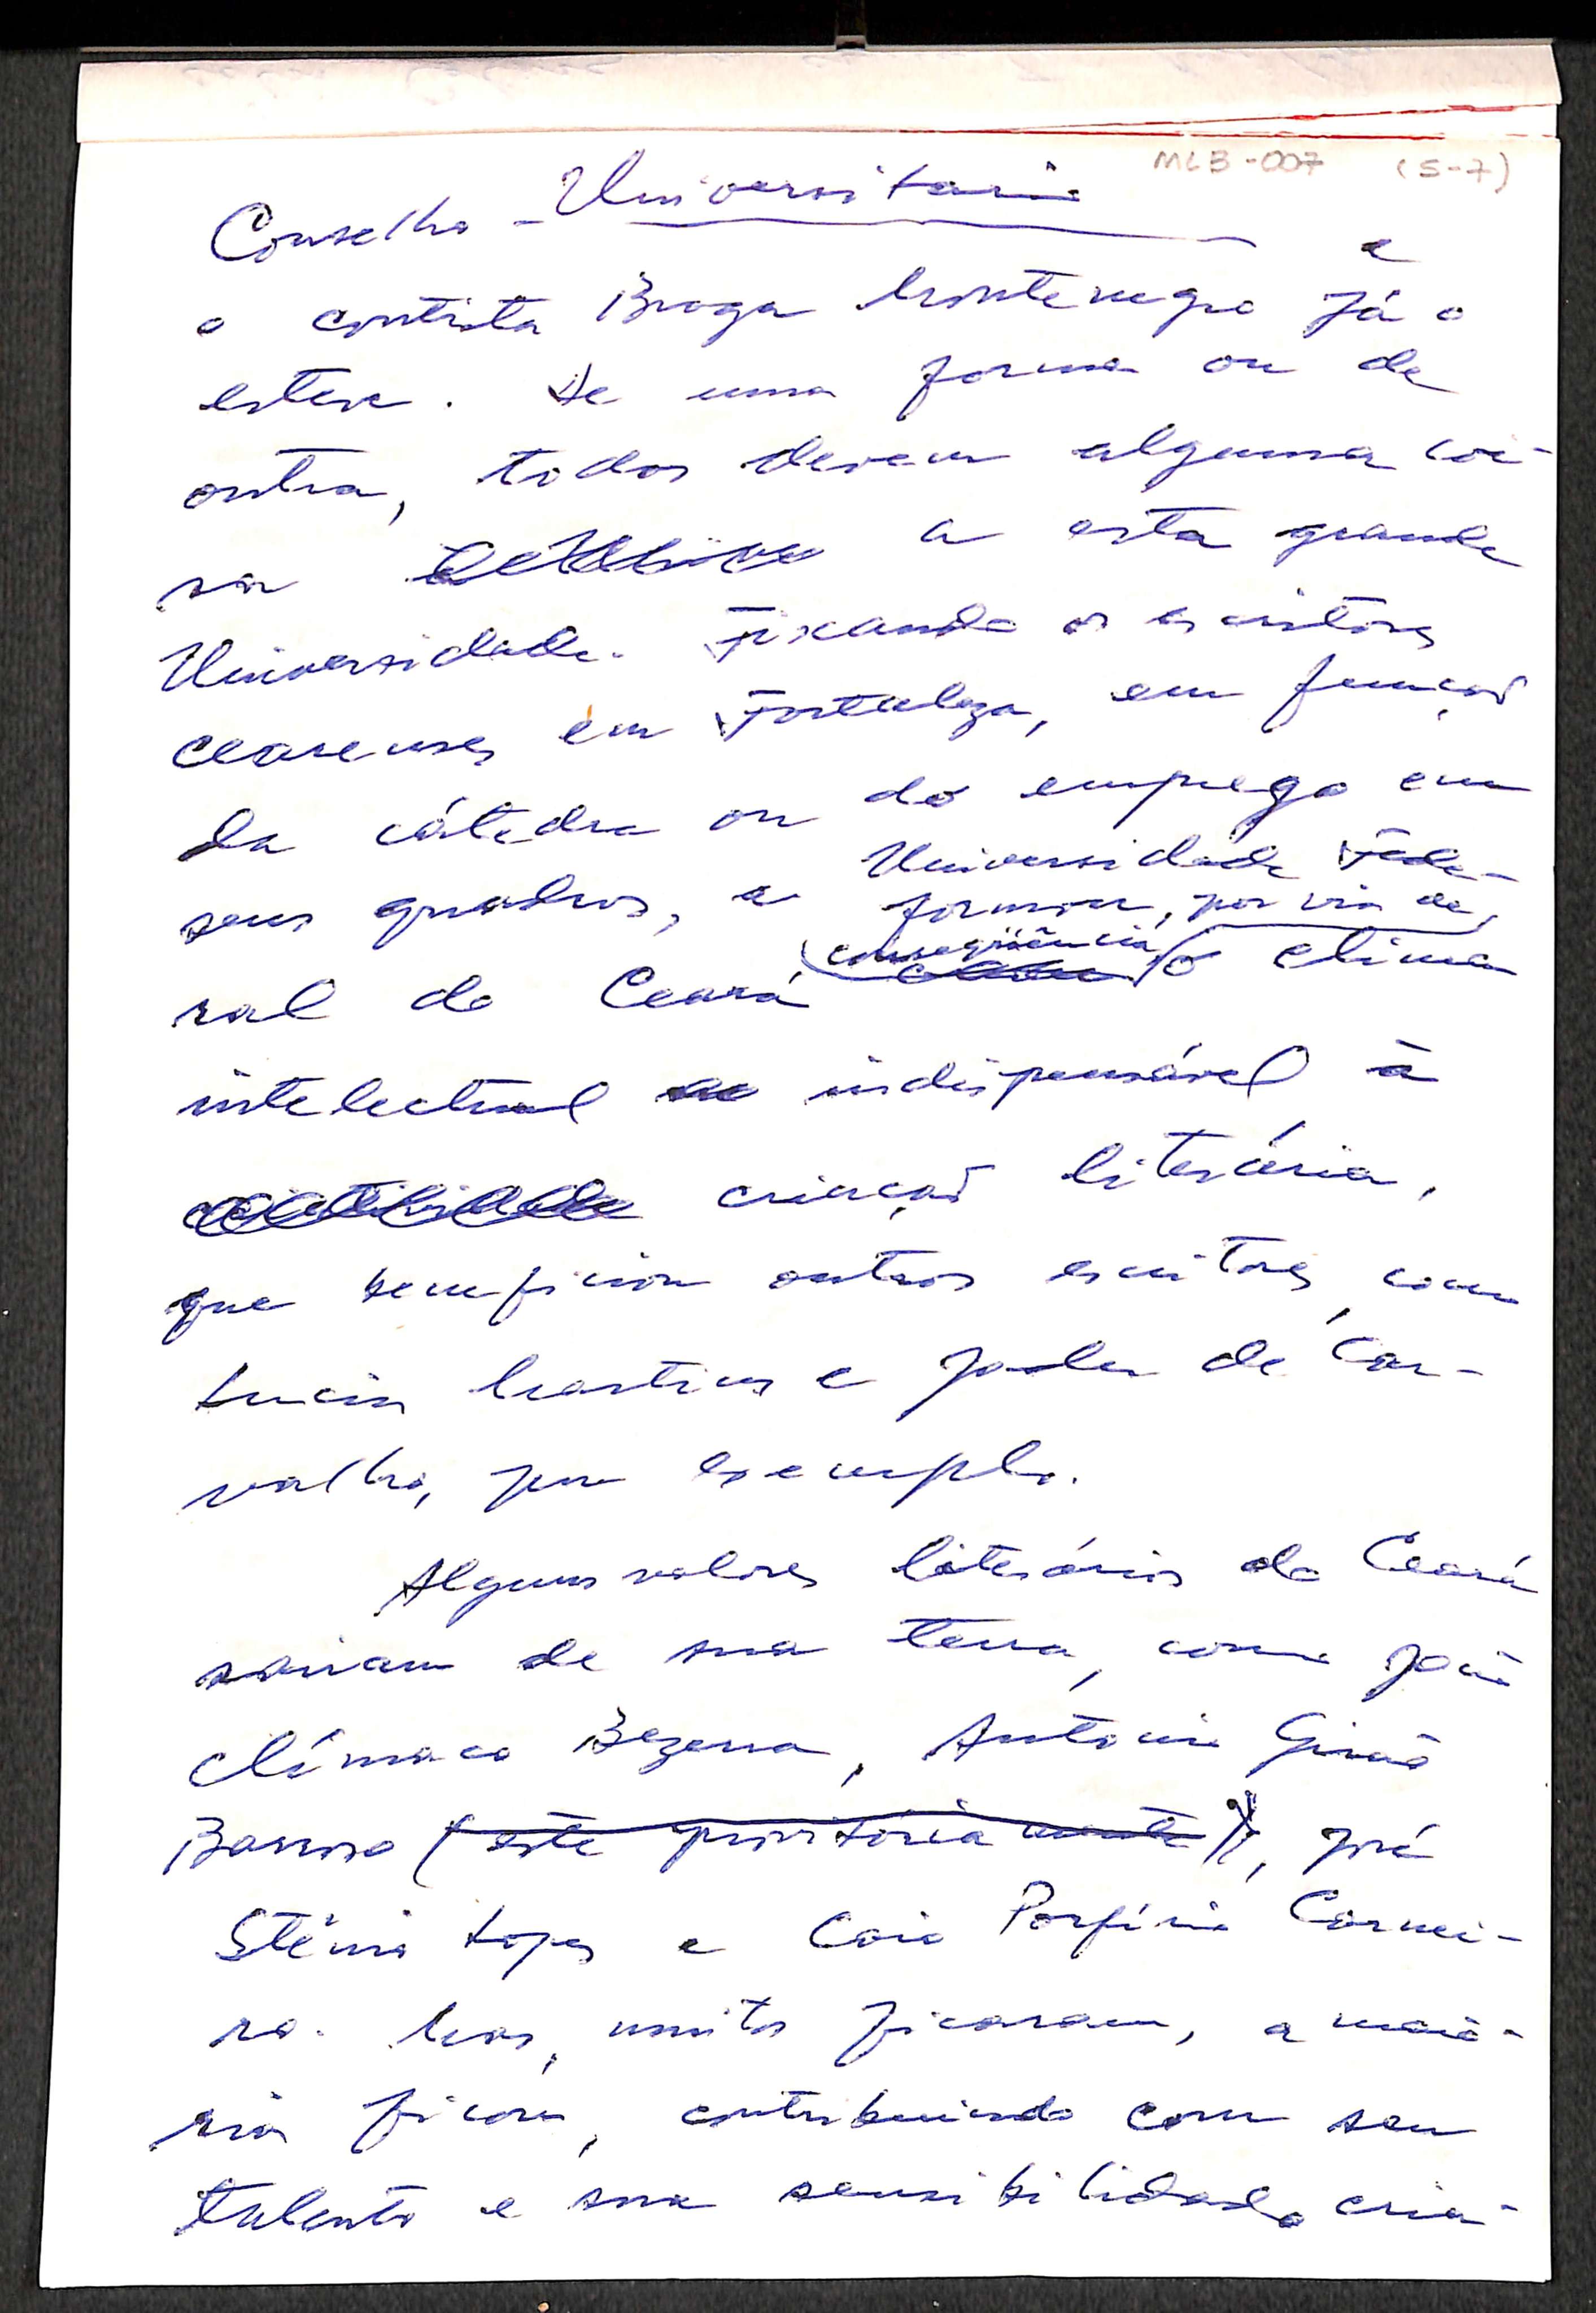 MLB-007 (5-7)
Conselho - Universitario e
o contista Braga Montenegro já o
esteve. De uma forma ou de
outra, todos devem alguma coi-
sa a esta grande
Universidade. Fixando os escritores
cearenses em Fortaleza, em função
da cátedra ou do emprego em
seus quadros, a Universidade Fede-
formou, por via de,
consequência,
ral do Ceará o clima
intelectual indispensável à
criação literária,
que beneficiou outros escritores, como
Lucia Martins e Jader de Car-
valho, por exemplo.
Alguns valores literários do Ceará
sairam de sua terra, como João
Clímaco Bezerra, Antonio Girão
Barroso (este provisoriamente), José
Stênio Lopes e Caio Porfírio Carnei-
ro. Mas, muitos ficaram, a maio-
ria ficou, contribuindo com seu
talento e sua sensibilidade cria-